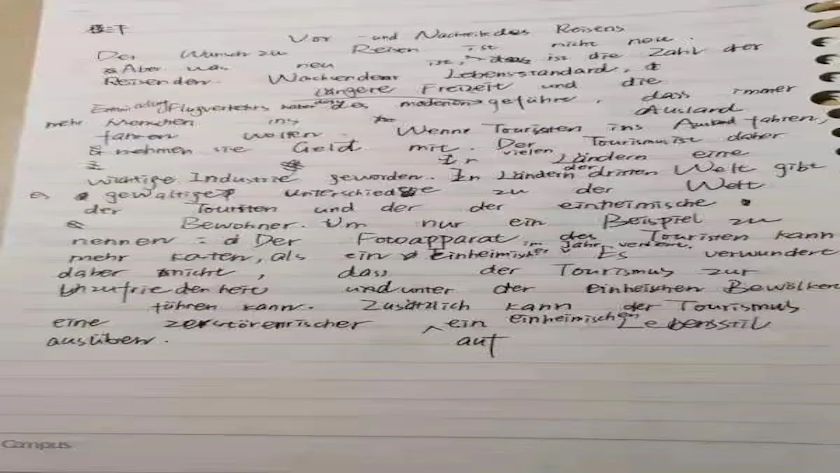 Vor- und Nachteile des Reisens
Der Wunsch zu Reisen ist nicht neu.
Aber was neu ist, das ist die Zahl der
Reisenden. Wachsender Lebensstandard,
längere Freizeit und die
Entwicklung des modernen Flugverkehrs geführt, dass immer
mehr Menschen ins Ausland
fahren wollen. Wenn Touristen ins Ausland fahren,
nehmen sie Geld mit. Der Tourismus ist daher
in vielen Ländern eine
wichtige Industrie geworden. In Ländern der dritten Welt gibt
es gewaltige Unterschiede zu der Welt
der Touristen und der der einheimische
Bewohner. Um nur ein Beispiel zu
nennen: Der Fotoapparat des Touristen kann
mehr kosten, als ein Einheimischer im Jahr verdient. Es verwundert
daher nicht, dass der Tourismus zur
Unzufriedenheit und unter der einheischen Bevölkerung
führen kann. Zusätzlich kann der Tourismus
eine zerstörerischer auf ein einheimischen Lebensstil
ausüben.
Campus